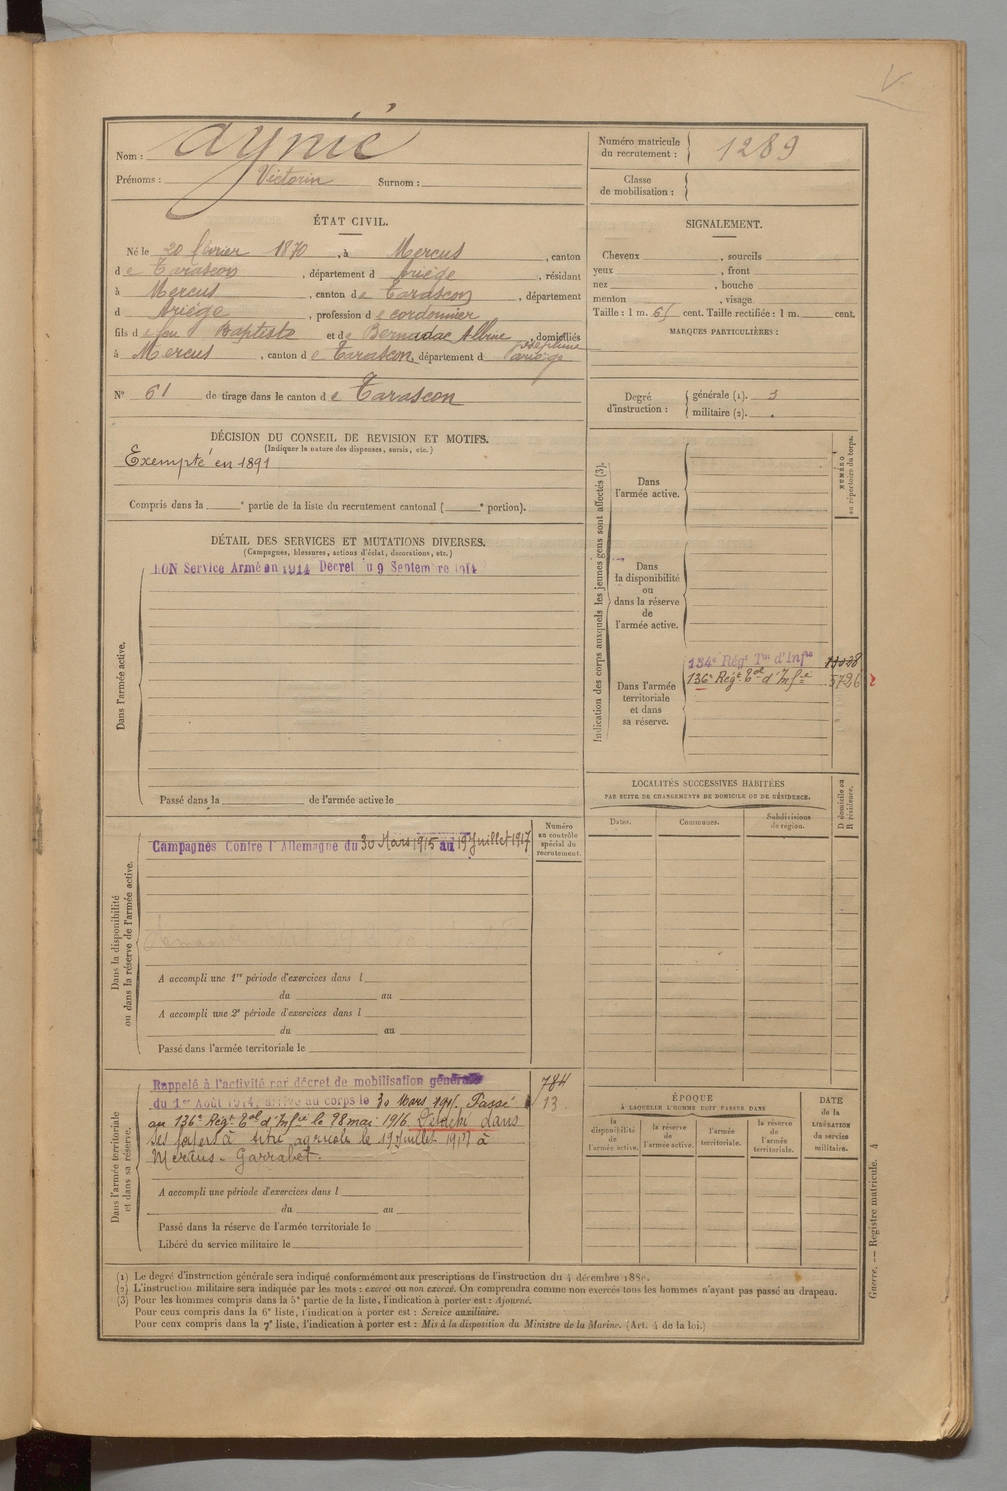 Nom : Aynié
Prénoms : Victorin Surnom :
Numéro matricule du recrutement : 1289
Classe de mobilisation :
ÉTAT CIVIL.
Né le 20 février 1870, à Mercus, canton
de Tarascon, département d Ariège, résidant
à Mercus, canton de Tarascon, département
d Ariège, profession de cordonnier
fils de feu Baptiste et de Bernadac Albine Joséphine, domiciliés
à Mercus, canton de Tarascon, département d Ariège
SIGNALEMENT.
Cheveux , sourcils
yeux , front
nez , bouche
menton , visage
Taille : 1 m. 61 cent. Taille rectifiée : 1 m. cent.
MARQUES PARTICULIÈRES :
N° 61 de tirage dans le canton de Tarascon
Degré d'instruction : générale (1). 3
militaire (2).
DÉCISION DU CONSEIL DE REVISION ET MOTIFS.
(Indiquer la nature des dispenses, sursis, etc.)
Exempté en 1891
Compris dans la ᵉ partie de la liste du recrutement cantonal ( ᵉ portion).
DÉTAIL DES SERVICES ET MUTATIONS DIVERSES.
(Campagnes, blessures, actions d'éclat, décorations, etc.)
BON Service Armé en 1914 Decret du 9 Septembre 1914
Dans l'armée active.
Passé dans la de l'armée active le
Indication des corps auxquels les jeunes gens sont affectés (3).
NUMÉRO au répertoire du corps.
Dans l'armée active.
Dans la disponibilité ou dans la réserve de l'armée active.
Dans l'armée territoriale et dans sa réserve.
134e Régt Tal d'Infie
136e Régt Tal d'Infie 5726
LOCALITÉS SUCCESSIVES HABITÉES
PAR SUITE DE CHANGEMENTS DE DOMICILE OU DE RÉSIDENCE.
D domicile ou R résidence.
Dates. Communes. Subdivisions de région.
Dans la disponibilité ou dans la réserve de l'armée active.
Numéro au contrôle spécial du recrutement.
Campagnes Contre l'Allemagne du 30 Mars 1915 au 19 Juillet 1917
A accompli une 1re période d'exercices dans l
du au
A accompli une 2e période d'exercices dans l
du au
Passé dans l'armée territoriale le
Dans l'armée territoriale et dans sa réserve.
Rappelé à l'activité par décret de mobilisation générale
du 1er Août 1914, arrivé au corps le 30 Mars 1915. Passé
au 136e Régt Tal d'Infie le 28 mai 1916. Détaché dans
ses foyers à titre agricole le 19 juillet 1917 à
Mercus-Garrabet.
784
13
A accompli une période d'exercices dans l
du au
Passé dans la réserve de l'armée territoriale le
Libéré du service militaire le
ÉPOQUE
À LAQUELLE L'HOMME DOIT PASSER DANS
la disponibilité de l'armée active.
la réserve de l'armée active.
l'armée territoriale.
la réserve de l'armée territoriale.
DATE de la LIBÉRATION du service militaire.
(1) Le degré d'instruction générale sera indiqué conformément aux prescriptions de l'instruction du 4 décembre 1889.
(2) L'instruction militaire sera indiquée par les mots : exercé ou non exercé. On comprendra comme non exercés tous les hommes n'ayant pas passé au drapeau.
(3) Pour les hommes compris dans la 5e partie de la liste, l'indication à porter est : Ajourné.
Pour ceux compris dans la 6e liste, l'indication à porter est : Service auxiliaire.
Pour ceux compris dans la 7e liste, l'indication à porter est : Mis à la disposition du Ministre de la Marine. (Art. 4 de la loi.)
Guerre. — Registre matricule. 4